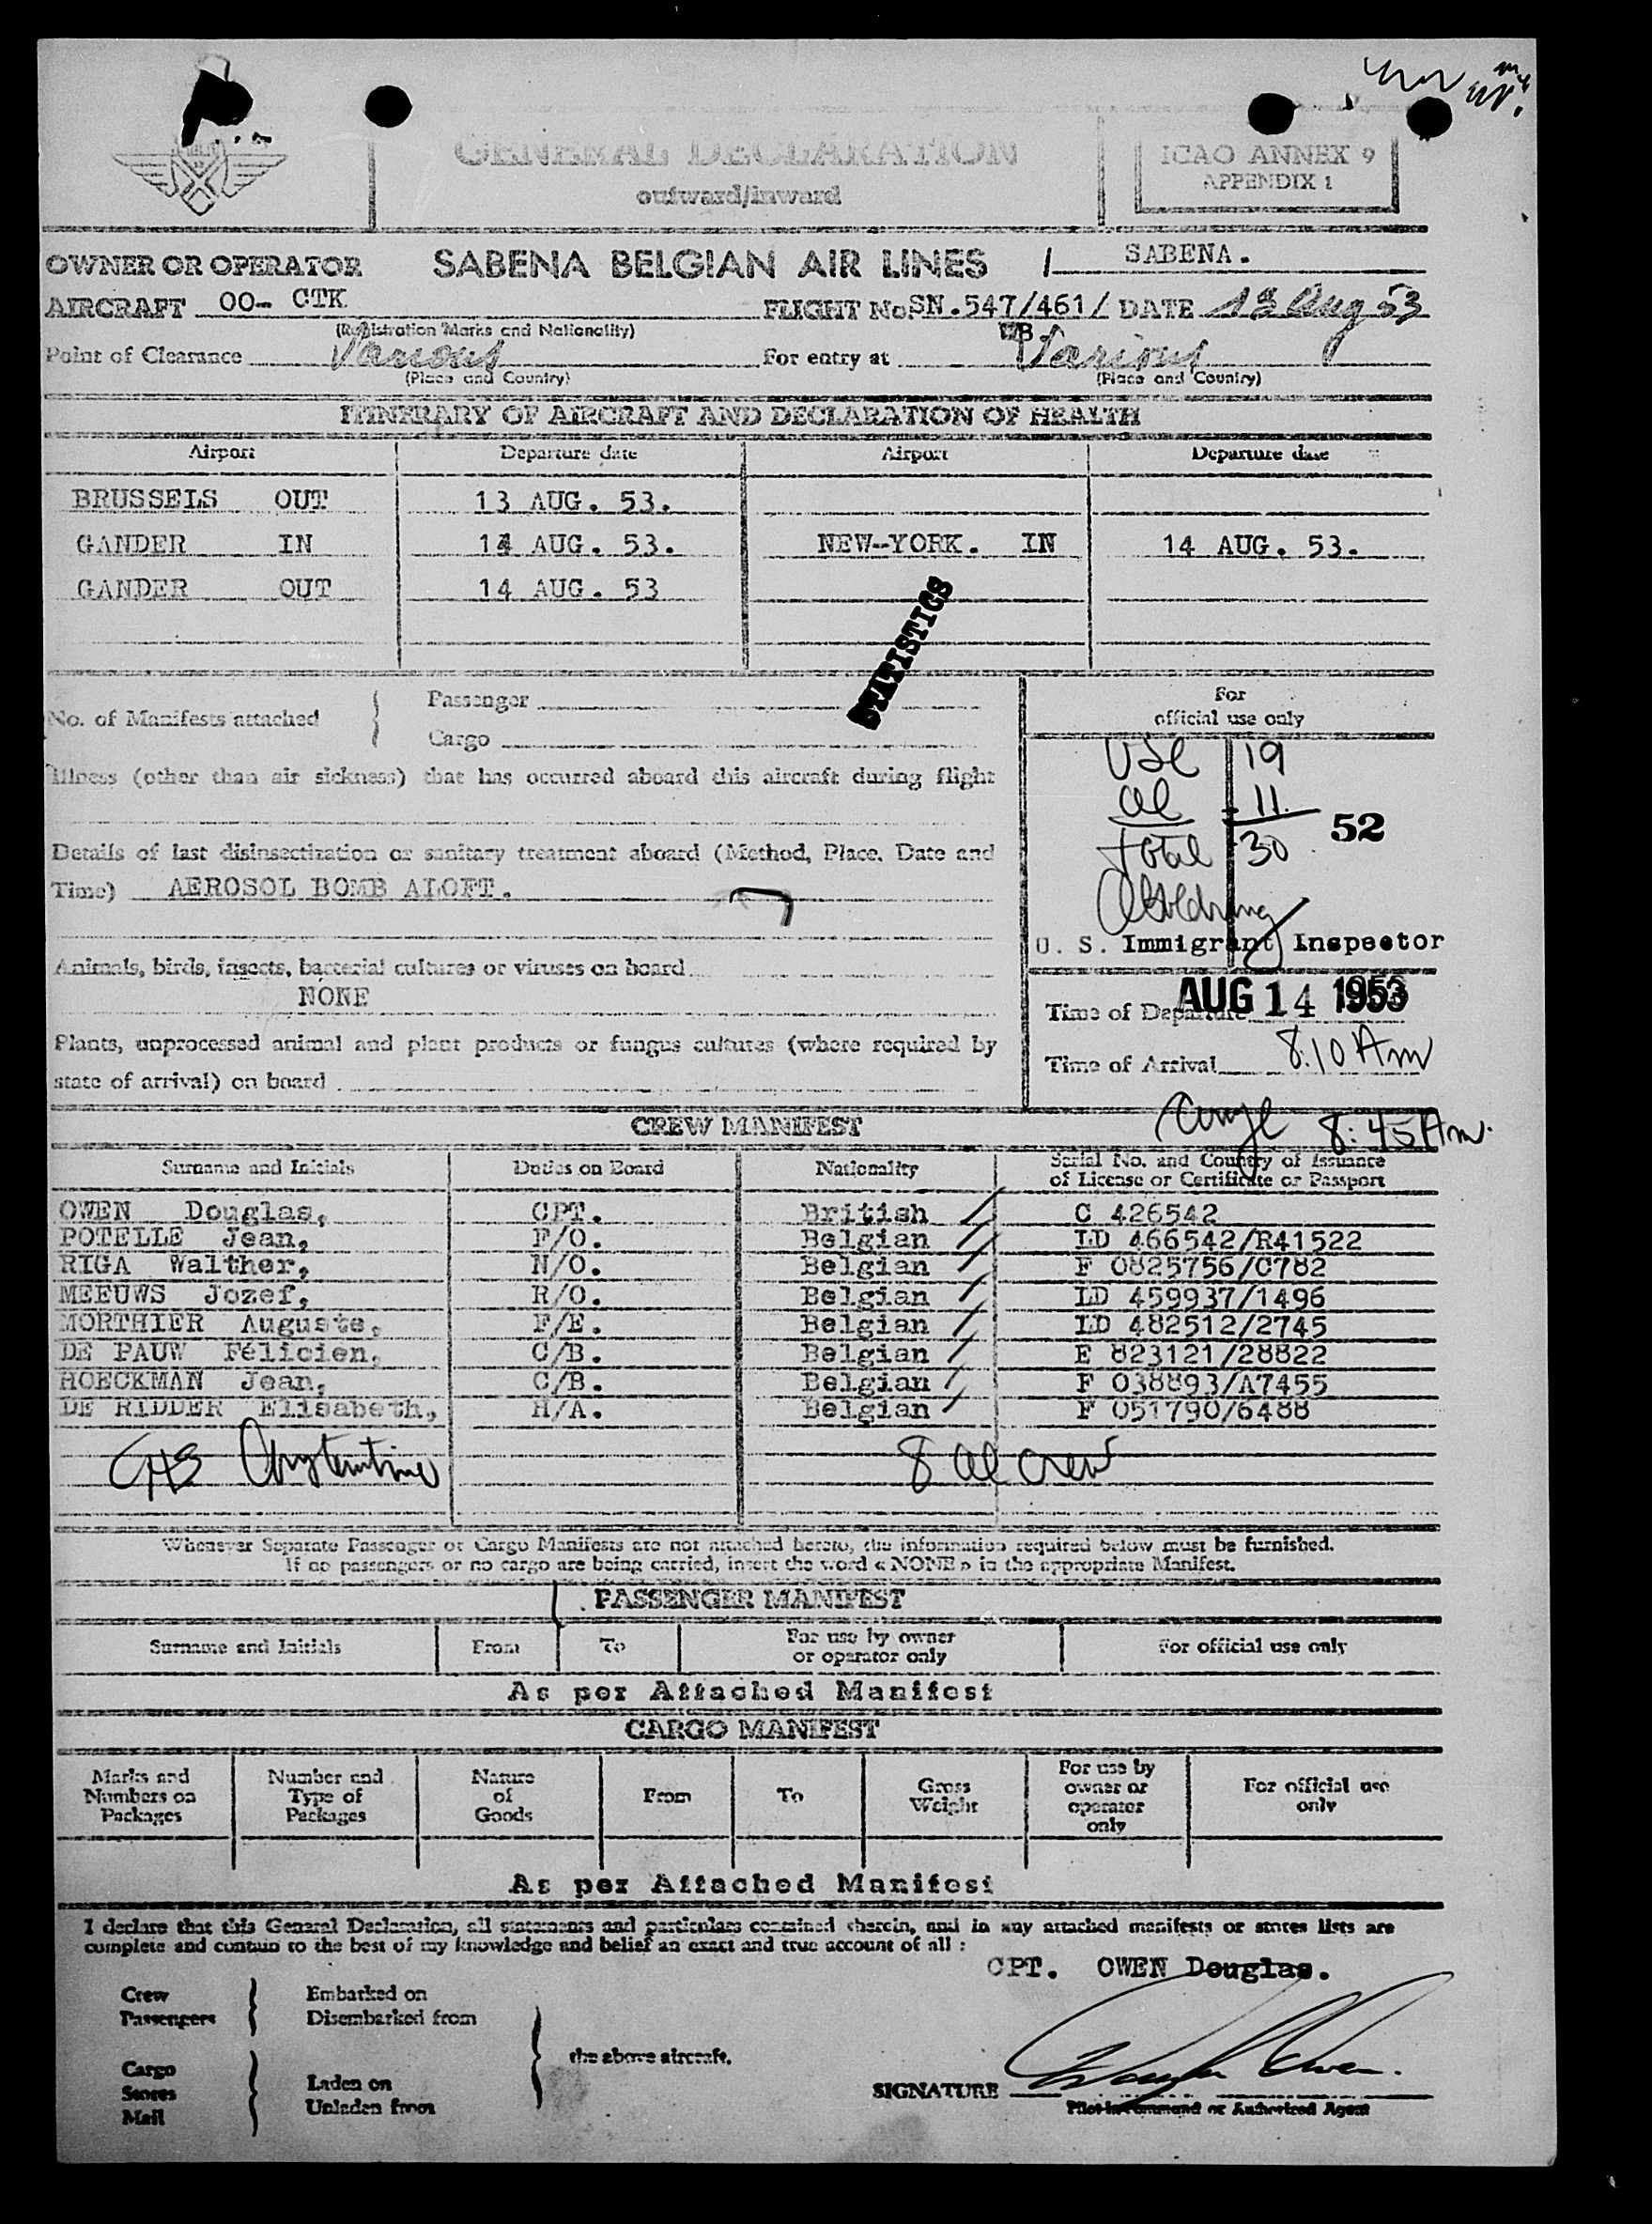 GENERAL DECLARATION
outward/inward
ICAO ANNEX 9
APPENDIX 1
OWNER OR OPERATOR SABENA BELGIAN AIR LINES / SABENA.
AIRCRAFT OO- CTK FLIGHT No SN.547/461/ DATE 13 Aug 53
(Registration Marks and Nationality) WB
Point of Clearance Various For entry at Various
(Place and Country) (Place and Country)
ITINERARY OF AIRCRAFT AND DECLARATION OF HEALTH
Airport Departure date Airport Departure date
BRUSSELS OUT 13 AUG. 53.
GANDER IN 14 AUG. 53. NEW-YORK. IN 14 AUG. 53.
GANDER OUT 14 AUG. 53
STATISTICS
No. of Manifests attached
Passenger
Cargo
For
official use only
Illness (other than air sickness) that has occurred aboard this aircraft during flight
USC 19
al 11
Total 30
52
Details of last disinsectization or sanitary treatment aboard (Method, Place, Date and
Time) AEROSOL BOMB ALOFT.
U. S. Immigrant Inspector
Animals, birds, insects, bacterial cultures or viruses on board
NONE
AUG 14 1953
Time of Departure
Plants, unprocessed animal and plant products or fungus cultures (where required by
state of arrival) on board
Time of Arrival 8.10 Am
8:45 Am.
CREW MANIFEST
Surname and Initials Duties on Board Nationality Serial No. and Country of Issuance
of License or Certificate or Passport
OWEN Douglas, CPT. British C 426542
POTELLE Jean, F/O. Belgian LD 466542/R41522
RIGA Walther, N/O. Belgian F 0825756/0782
MEEUWS Jozef, R/O. Belgian LD 459937/1496
MORTHIER Auguste, F/E. Belgian LD 482512/2745
DE PAUW Félicien, C/B. Belgian E 823121/28822
HOECKMAN Jean, C/B. Belgian F 038893/A7455
DE RIDDER Elisabeth, H/A. Belgian F 051790/6488
8 al crew
Whenever Separate Passenger or Cargo Manifests are not attached hereto, the information required below must be furnished.
If no passengers or no cargo are being carried, insert the word « NONE » in the appropriate Manifest.
PASSENGER MANIFEST
Surname and Initials From To For use by owner or operator only For official use only
As per Attached Manifest
CARGO MANIFEST
Marks and Numbers on Packages Number and Type of Packages Nature of Goods From To Gross Weight For use by owner or operator only For official use only
As per Attached Manifest
I declare that this General Declaration, all statements and particulars contained therein, and in any attached manifests or stores lists are
complete and contain to the best of my knowledge and belief an exact and true account of all :
CPT. OWEN Douglas.
Crew
Passengers
Embarked on
Disembarked from
the above aircraft.
Cargo
Stores
Mail
Laden on
Unladen from
SIGNATURE Douglas Owen.
Pilot in Command or Authorized Agent